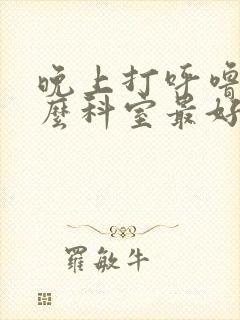 晚上打呼噜
麼科室最好
羅敏牛